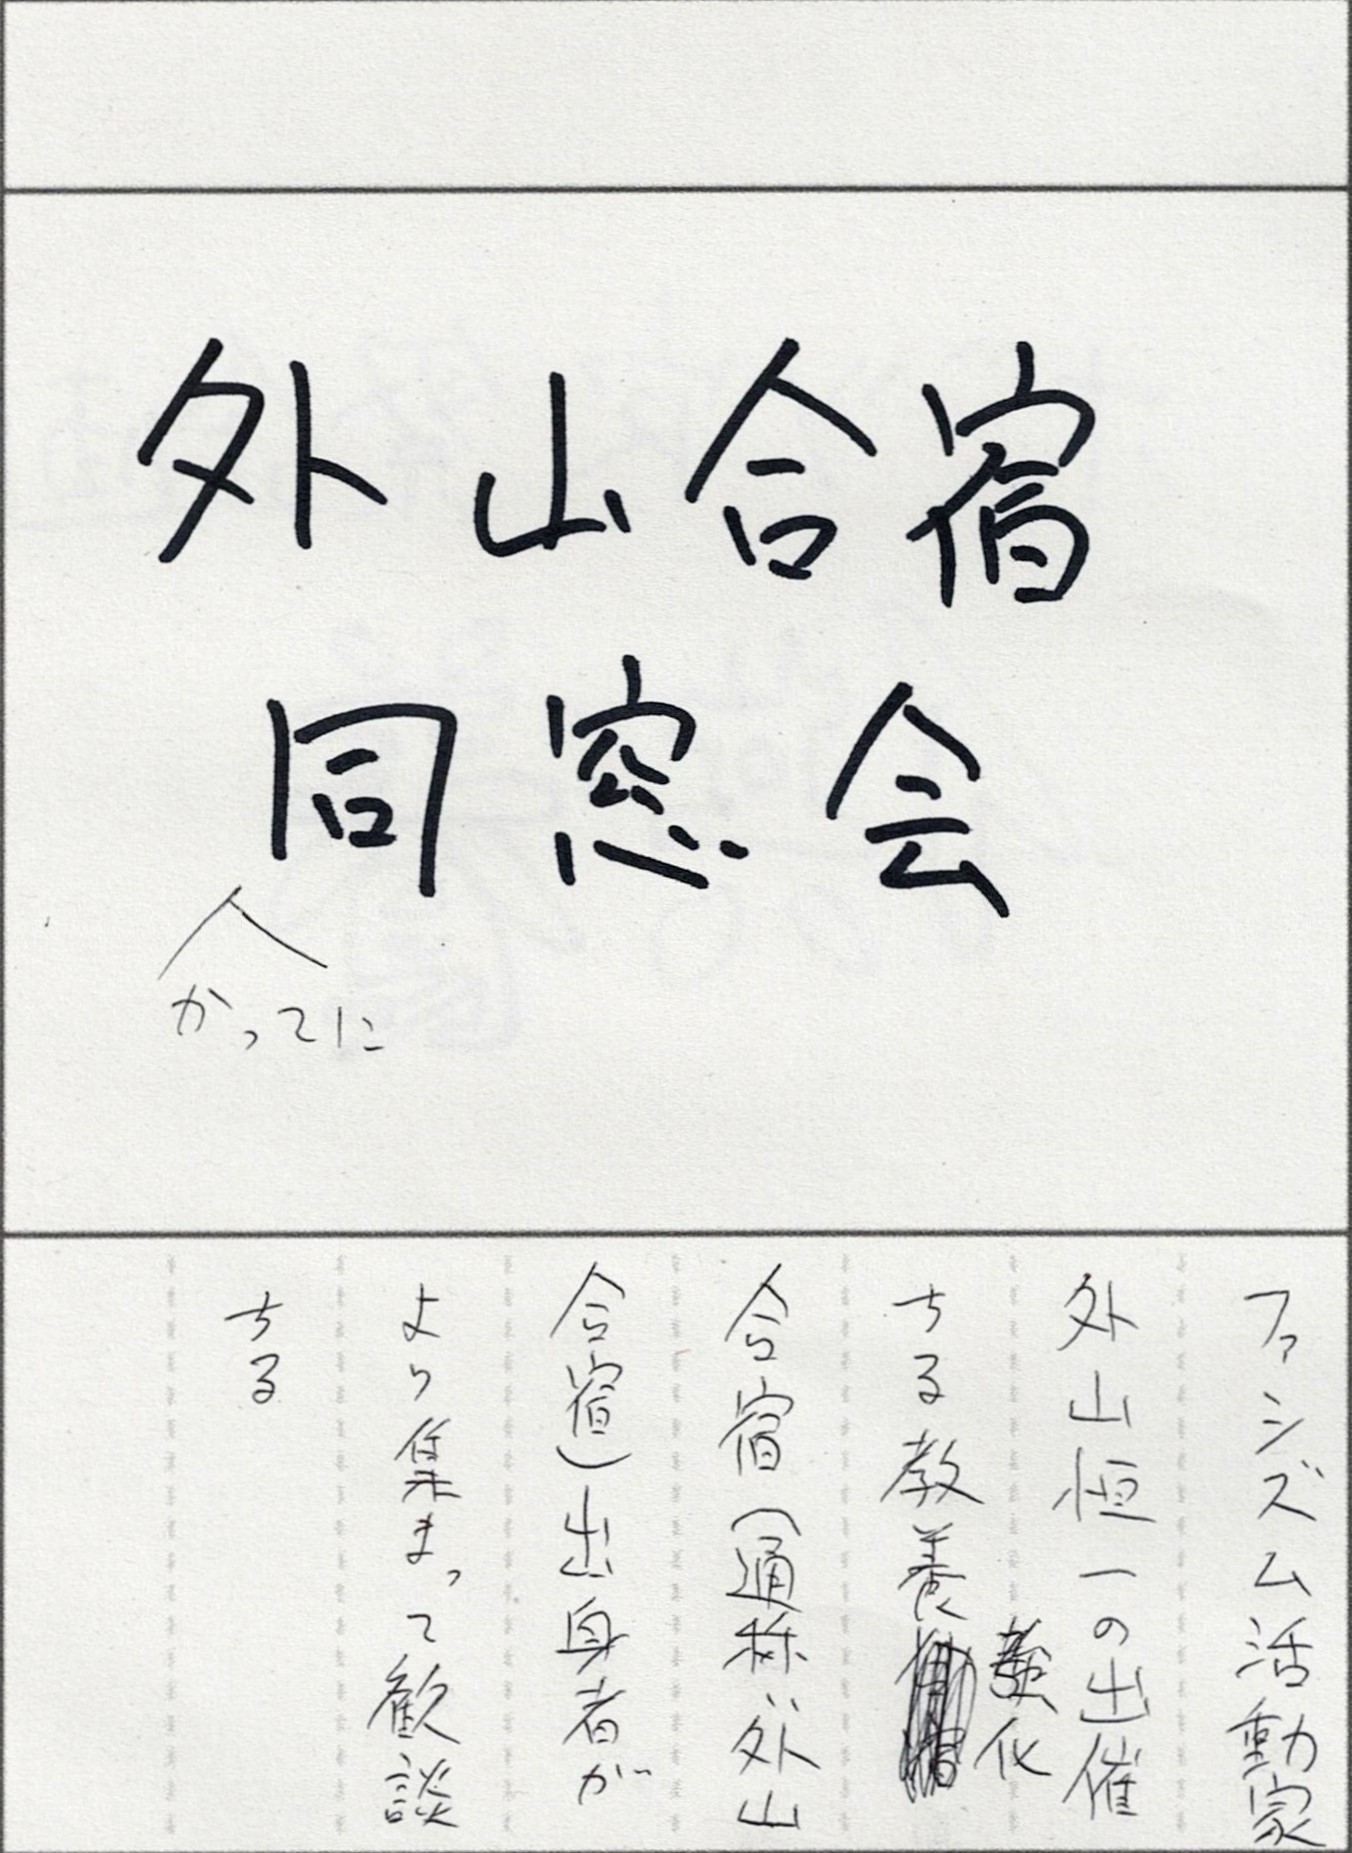 外山合宿
同窓会
かってに
ファシズム活動家
外山恒一の出催
する教養強化
合宿（通称・外山
合宿）出身者が
より集まって歓談
する